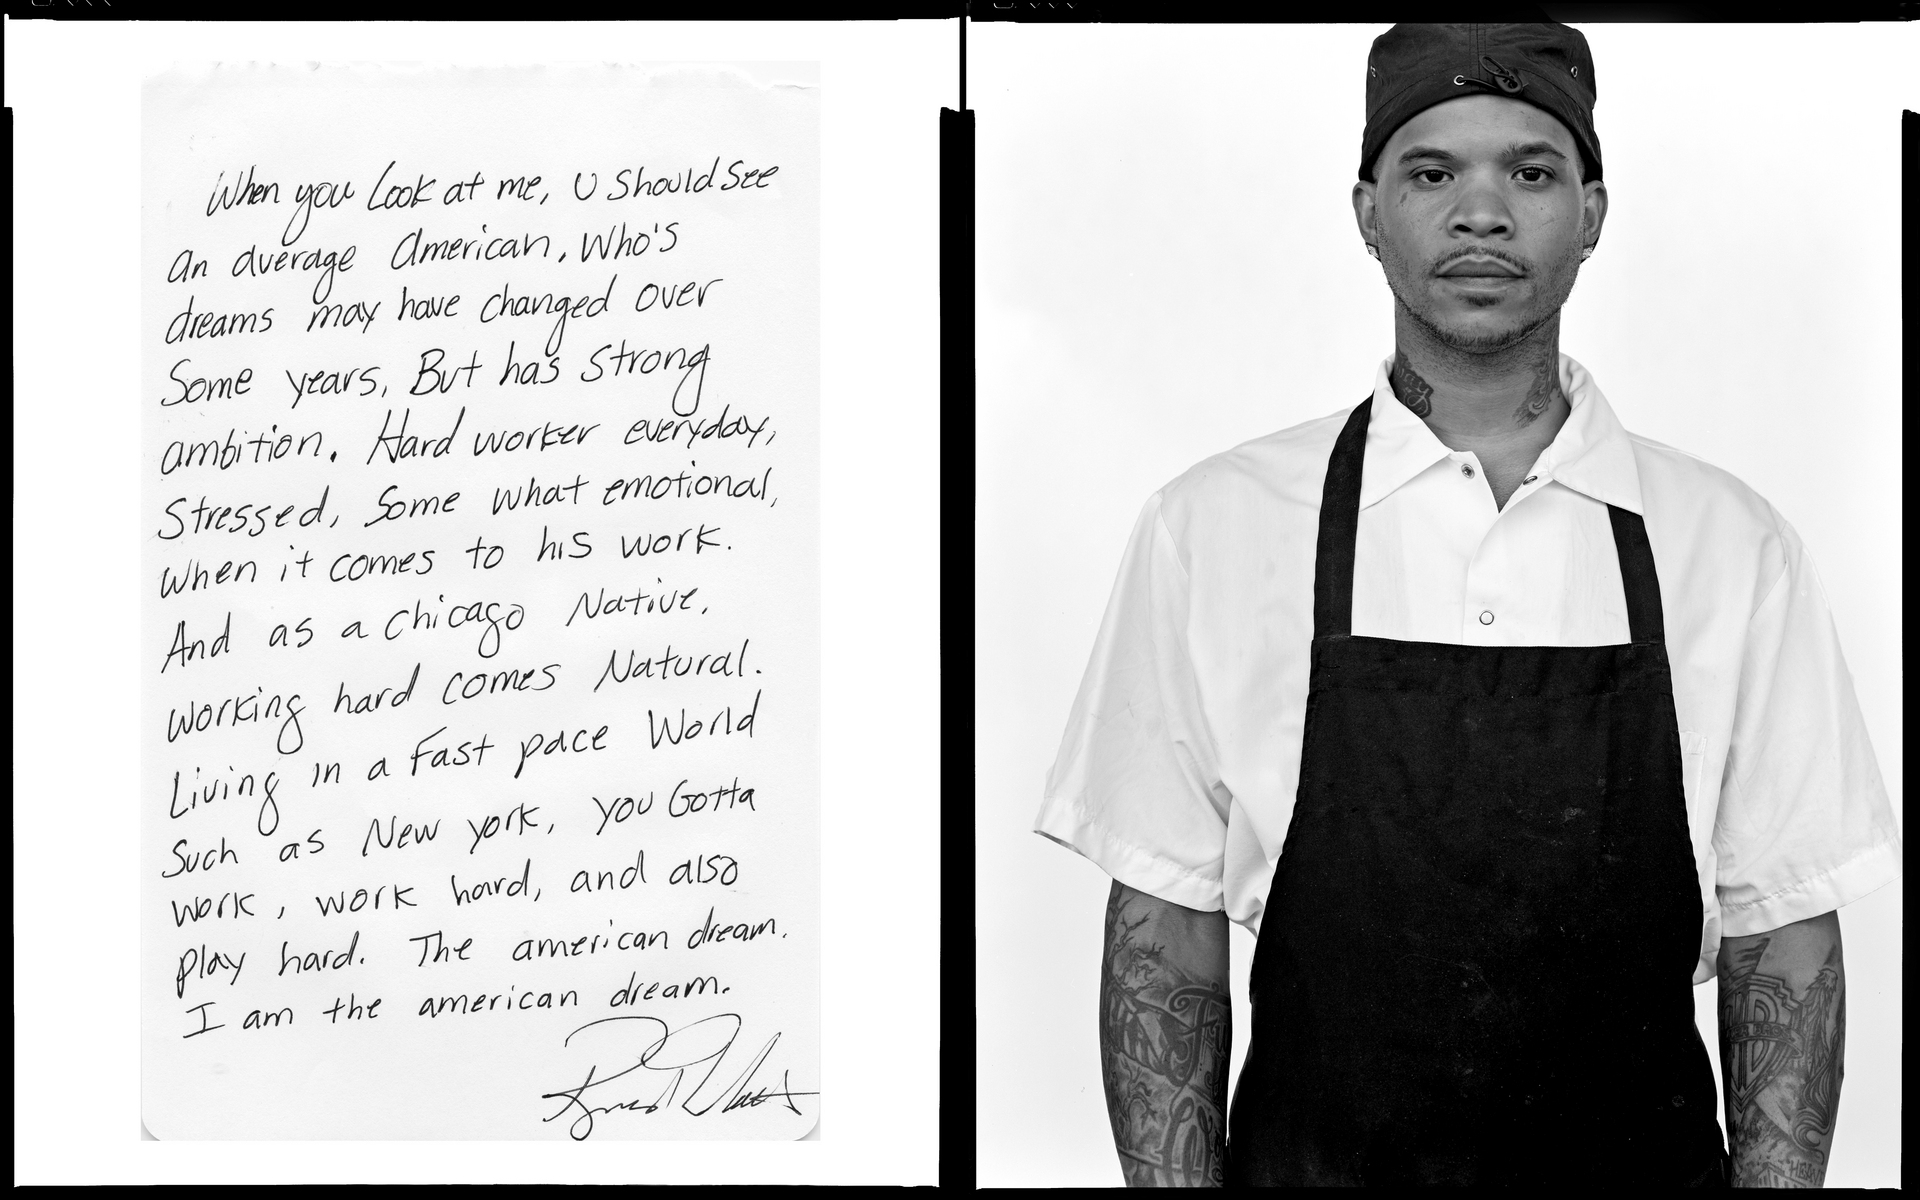 When you Look at me, U Should See
An average American, Who's
dreams may have changed over
Some years, But has strong
ambition. Hard worker everyday,
Stressed, Some what emotional,
when it comes to his work.
And as a Chicago Native,
working hard comes Natural.
Living in a Fast pace World
Such as New york, you Gotta
work, work hard, and also
play hard. The american dream.
I am the american dream.